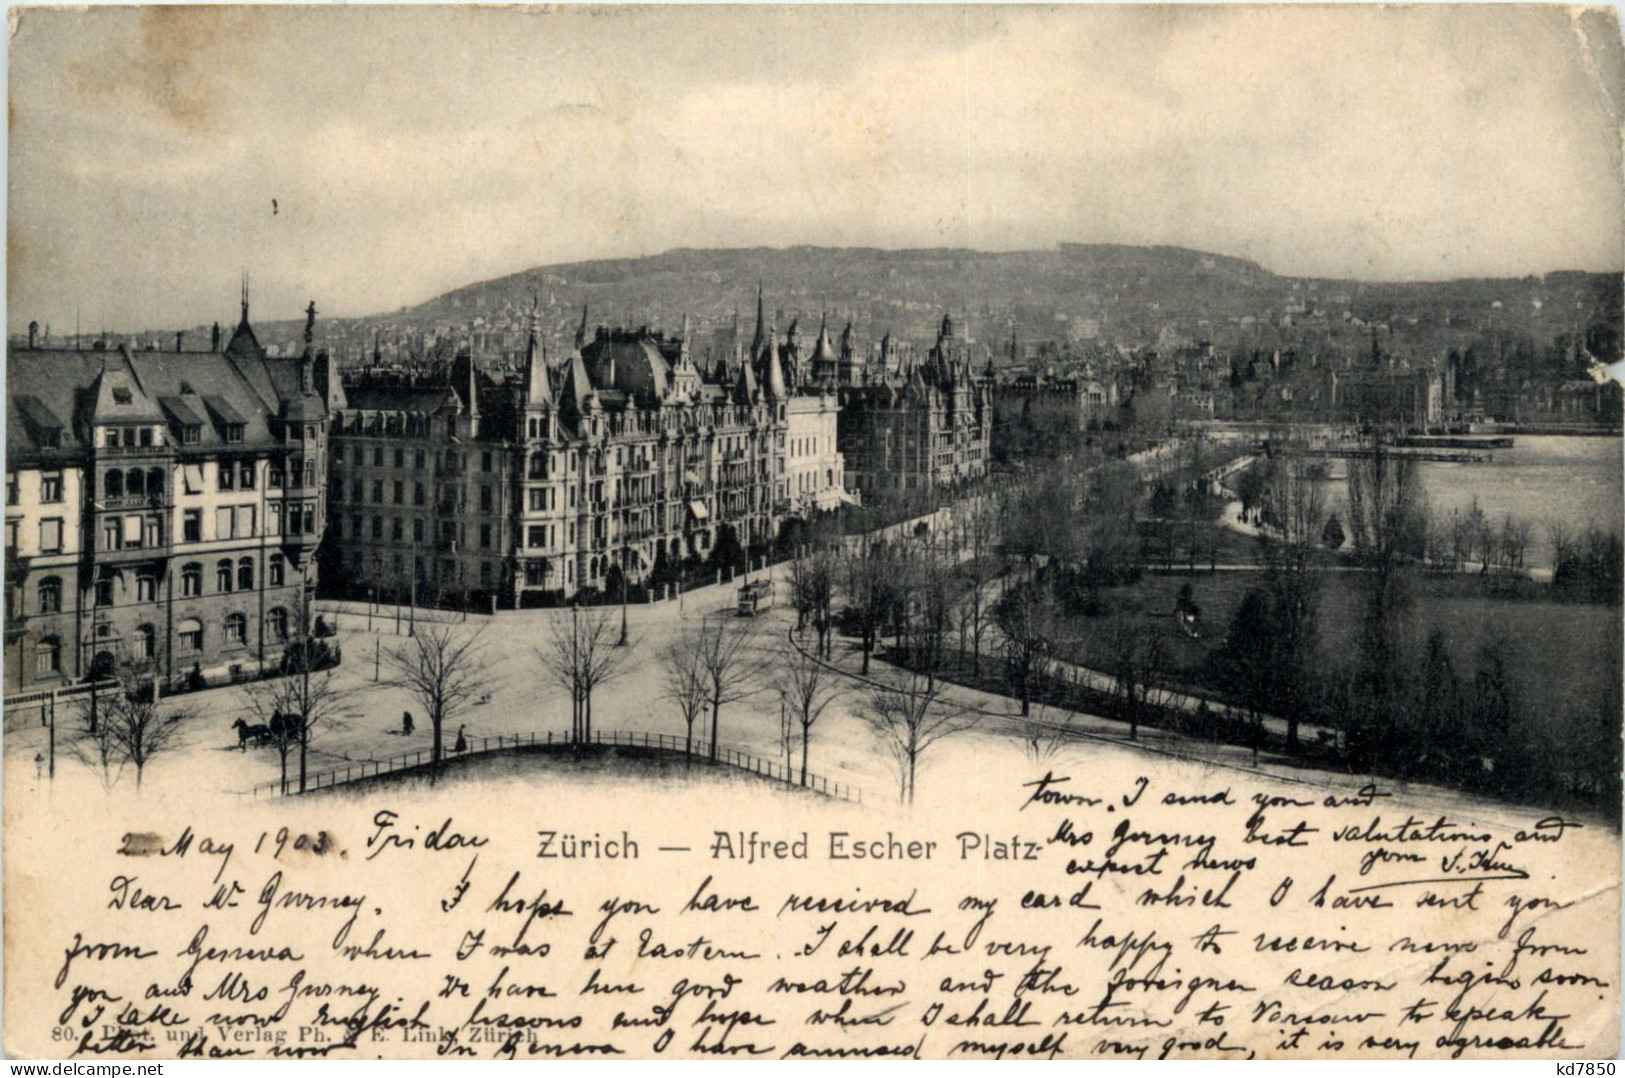 2 May 1903. Friday
Zürich — Alfred Escher Platz
Dear Mr Gurney. I hope you have received my card which I have sent you
from Geneva when I was at Eastern. I shall be very happy to receive news from
you and Mrs Gurney. We have here good weather and the foreigner season begins soon.
I take now English lessons and hope when I shall return to Varsaw to speak
80. Phot. und Verlag Ph. & E. Link, Zürich
better than now. In Geneva I have amused myself very good, it is very agreeable
town. I send you and
Mrs Gurney best salutations and
expect news your
kd7850